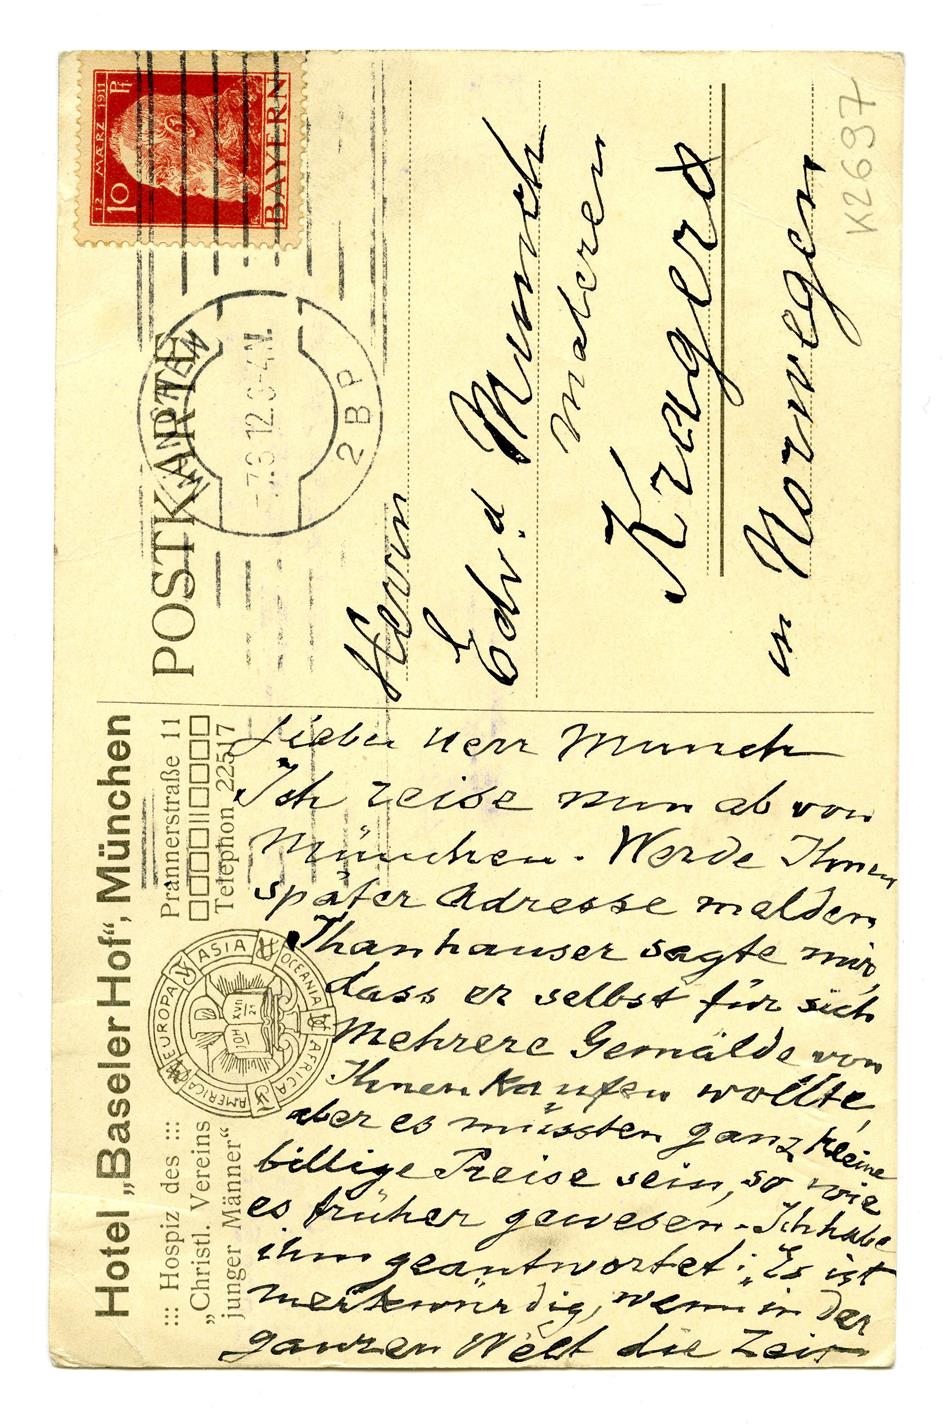 Hotel „Baseler Hof“, München
::: Hospiz des :::
„Christl. Vereins
junger Männer“
Prannerstraße 11
Telephon 22517
EUROPA
ASIA
OCEANIA
AFRICA
AMERICA
JOH XVII 21
POSTKARTE
12 MÄRZ 1911
10 Pf
BAYERN
MÜNCHEN
7.3.12.3-4N.
2 BP
K2697
Herrn
Edv.d Munch
Maleren
Kragerø
in Norwegen
Lieber Herr Munch
Ich reise nun ab von
München. Werde Ihnen
später Adresse melden,
Thanhauser sagte mir,
dass er selbst für sich
Mehrere Gemälde von
Ihnen Kaufen wollte,
aber es müssten ganz kleine
billige Preise sein, so wie
es früher gewesen. Ich habe
ihm geantwortet: „Es ist
merkwürdig, wenn in der
ganzen Welt die Zeit